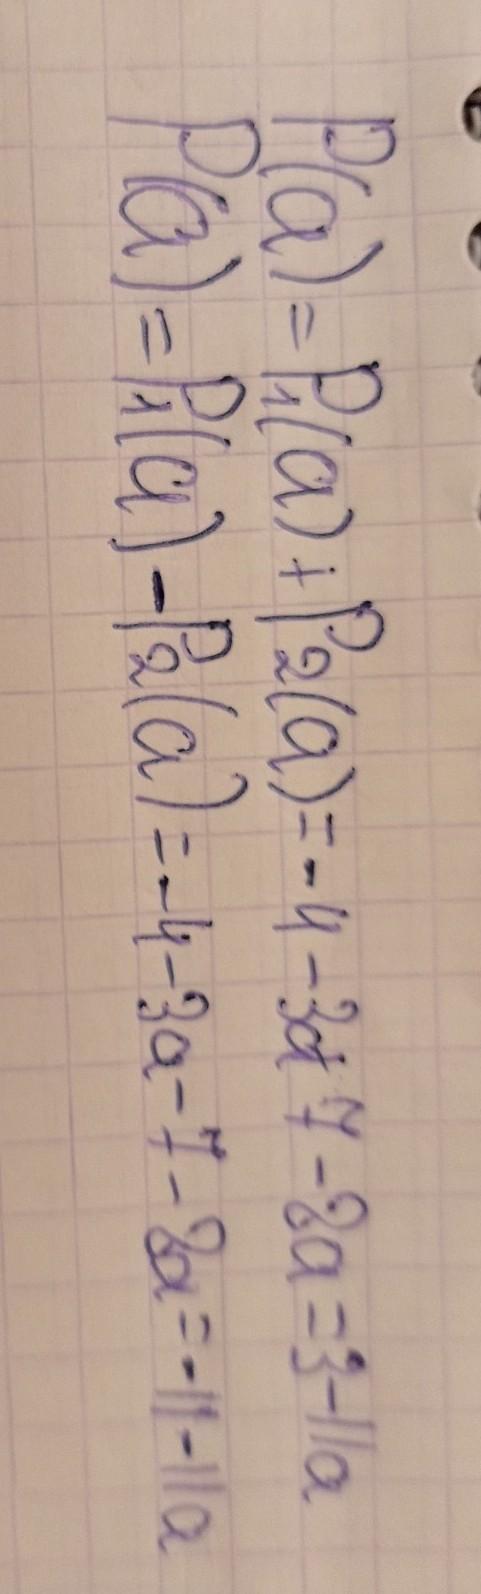 P(a) = P₁(a) + P₂(a) = -4 - 3a + 7 - 8a = 3 - 11a
P(a) = P₁(a) - P₂(a) = -4 - 3a - 7 - 8a = -11 - 11a